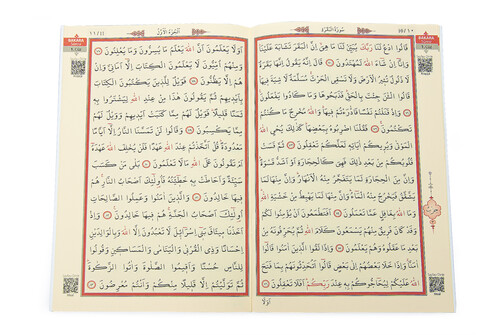 سُورَةُ الْبَقَرَةِ
قَالُوا ادْعُ لَنَا رَبَّكَ يُبَيِّنْ لَنَا مَا هِيَ اِنَّ الْبَقَرَ تَشَابَهَ عَلَيْنَا
وَاِنَّا اِنْ شَاءَ اللّٰهُ لَمُهْتَدُونَ قَالَ اِنَّهُ يَقُولُ اِنَّهَا بَقَرَةٌ
لَا ذَلُولٌ تُثِيرُ الْاَرْضَ وَلَا تَسْقِي الْحَرْثَ مُسَلَّمَةٌ لَا شِيَةَ فِيهَا
قَالُوا الْـٰٔنَ جِئْتَ بِالْحَقِّ فَذَبَحُوهَا وَمَا كَادُوا يَفْعَلُونَ
وَاِذْ قَتَلْتُمْ نَفْسًا فَادَّارَءْتُمْ فِيهَا وَاللّٰهُ مُخْرِجٌ مَا كُنْتُمْ
تَكْتُمُونَ فَقُلْنَا اضْرِبُوهُ بِبَعْضِهَا كَذٰلِكَ يُحْيِ اللّٰهُ
الْمَوْتٰى وَيُرِيكُمْ اٰيَاتِهِ لَعَلَّكُمْ تَعْقِلُونَ ثُمَّ قَسَتْ
قُلُوبُكُمْ مِنْ بَعْدِ ذٰلِكَ فَهِيَ كَالْحِجَارَةِ اَوْ اَشَدُّ قَسْوَةً
وَاِنَّ مِنَ الْحِجَارَةِ لَمَا يَتَفَجَّرُ مِنْهُ الْاَنْهَارُ وَاِنَّ مِنْهَا لَمَا
يَشَّقَّقُ فَيَخْرُجُ مِنْهُ الْمَاءُ وَاِنَّ مِنْهَا لَمَا يَهْبِطُ مِنْ خَشْيَةِ اللّٰهِ
وَمَا اللّٰهُ بِغَافِلٍ عَمَّا تَعْمَلُونَ اَفَتَطْمَعُونَ اَنْ يُؤْمِنُوا لَكُمْ
وَقَدْ كَانَ فَرِيقٌ مِنْهُمْ يَسْمَعُونَ كَلَامَ اللّٰهِ ثُمَّ يُحَرِّفُونَهُ مِنْ
بَعْدِ مَا عَقَلُوهُ وَهُمْ يَعْلَمُونَ وَاِذَا لَقُوا الَّذِينَ اٰمَنُوا قَالُوا
اٰمَنَّا وَاِذَا خَلَا بَعْضُهُمْ اِلٰى بَعْضٍ قَالُوا اَتُحَدِّثُونَهُمْ بِمَا فَتَحَ
اللّٰهُ عَلَيْكُمْ لِيُحَاجُّوكُمْ بِهِ عِنْدَ رَبِّكُمْ اَفَلَا تَعْقِلُونَ
اَوَلَا
اَلْجُزْءُ الْاَوَّلُ
BAKARA
اَوَلَا يَعْلَمُونَ اَنَّ اللّٰهَ يَعْلَمُ مَا يُسِرُّونَ وَمَا يُعْلِنُونَ
وَمِنْهُمْ اُمِّيُّونَ لَا يَعْلَمُونَ الْكِتَابَ اِلَّا اَمَانِيَّ وَاِنْ
هُمْ اِلَّا يَظُنُّونَ فَوَيْلٌ لِلَّذِينَ يَكْتُبُونَ الْكِتَابَ
بِاَيْدِيهِمْ ثُمَّ يَقُولُونَ هٰذَا مِنْ عِنْدِ اللّٰهِ لِيَشْتَرُوا بِهِ
ثَمَنًا قَلِيلًا فَوَيْلٌ لَهُمْ مِمَّا كَتَبَتْ اَيْدِيهِمْ وَوَيْلٌ لَهُمْ
مِمَّا يَكْسِبُونَ وَقَالُوا لَنْ تَمَسَّنَا النَّارُ اِلَّا اَيَّامًا
مَعْدُودَةً قُلْ اَتَّخَذْتُمْ عِنْدَ اللّٰهِ عَهْدًا فَلَنْ يُخْلِفَ اللّٰهُ عَهْدَهُ
اَمْ تَقُولُونَ عَلَى اللّٰهِ مَا لَا تَعْلَمُونَ بَلٰى مَنْ كَسَبَ
سَيِّئَةً وَاَحَاطَتْ بِهِ خَطِيئَتُهُ فَاُولٰئِكَ اَصْحَابُ النَّارِ هُمْ
فِيهَا خَالِدُونَ وَالَّذِينَ اٰمَنُوا وَعَمِلُوا الصَّالِحَاتِ
اُولٰئِكَ اَصْحَابُ الْجَنَّةِ هُمْ فِيهَا خَالِدُونَ وَاِذْ
اَخَذْنَا مِيثَاقَ بَنِي اِسْرَائِلَ لَا تَعْبُدُونَ اِلَّا اللّٰهَ وَبِالْوَالِدَيْنِ
اِحْسَانًا وَذِي الْقُرْبٰى وَالْيَتَامٰى وَالْمَسَاكِينِ وَقُولُوا
لِلنَّاسِ حُسْنًا وَاَقِيمُوا الصَّلٰوةَ وَاٰتُوا الزَّكٰوةَ
ثُمَّ تَوَلَّيْتُمْ اِلَّا قَلِيلًا مِنْكُمْ وَاَنْتُمْ مُعْرِضُونَ